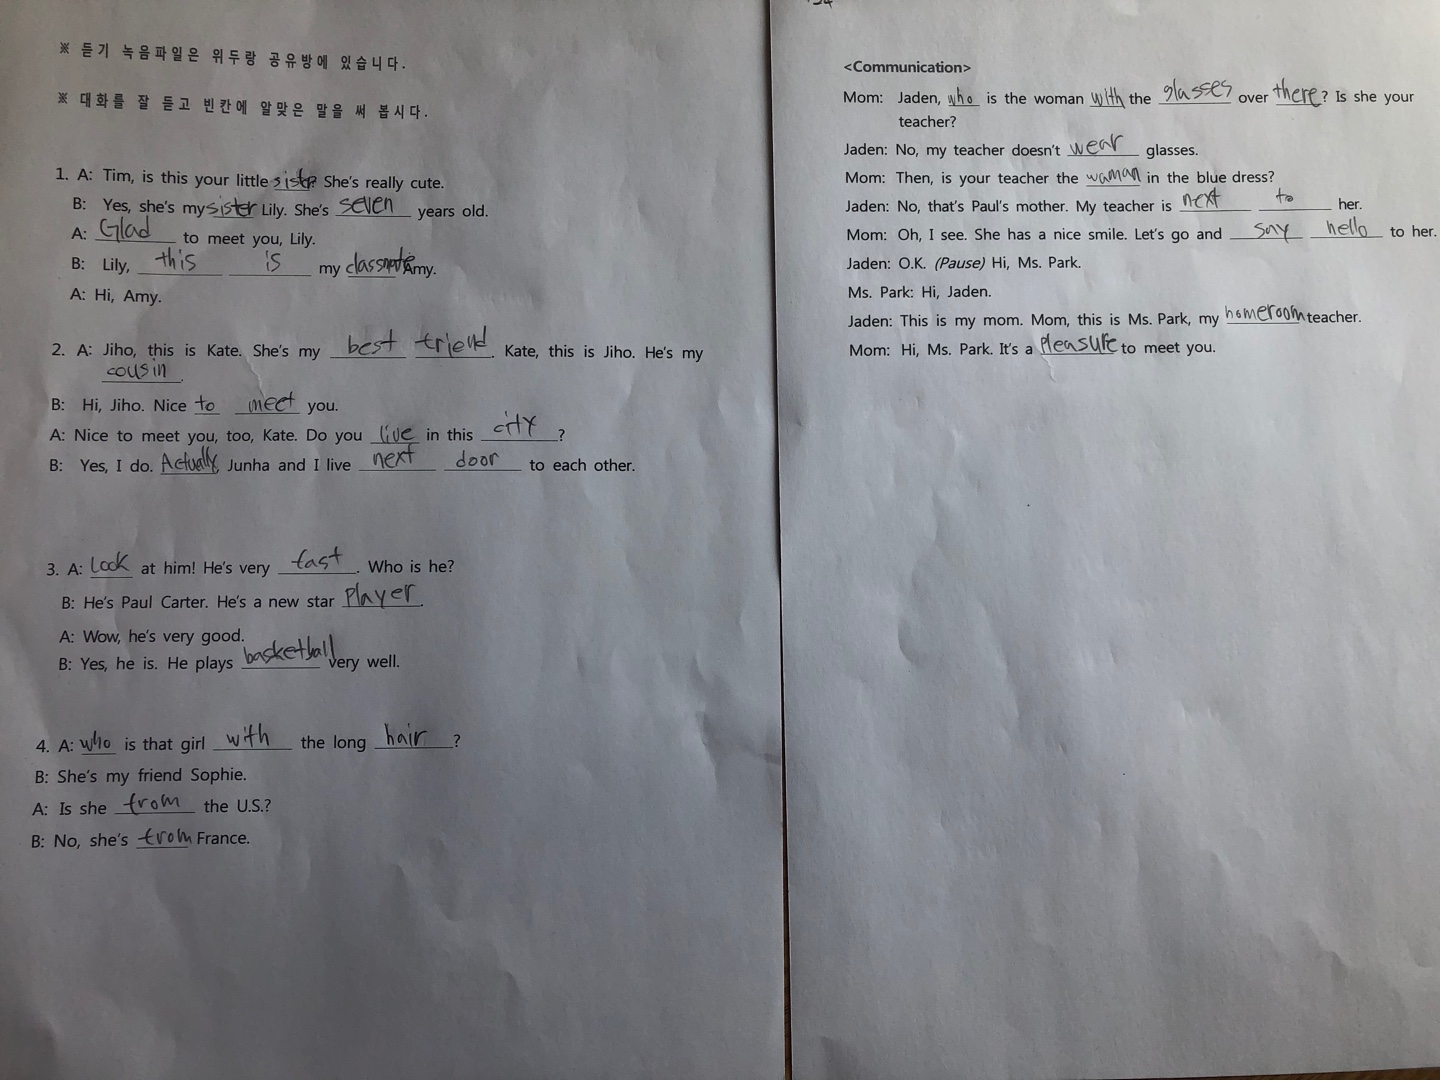 ※ 듣기 녹음파일은 위두랑 공유방에 있습니다.
※ 대화를 잘 듣고 빈칸에 알맞은 말을 써 봅시다.
1. A: Tim, is this your little sister? She's really cute.
B: Yes, she's my sister Lily. She's seven years old.
A: Glad to meet you, Lily.
B: Lily, this is my classmate Amy.
A: Hi, Amy.
2. A: Jiho, this is Kate. She's my best friend. Kate, this is Jiho. He's my
cousin.
B: Hi, Jiho. Nice to meet you.
A: Nice to meet you, too, Kate. Do you live in this city?
B: Yes, I do. Actually, Junha and I live next door to each other.
3. A: Look at him! He's very fast. Who is he?
B: He's Paul Carter. He's a new star player.
A: Wow, he's very good.
B: Yes, he is. He plays basketball very well.
4. A: who is that girl with the long hair?
B: She's my friend Sophie.
A: Is she from the U.S.?
B: No, she's from France.
<Communication>
Mom: Jaden, who is the woman with the glasses over there? Is she your
teacher?
Jaden: No, my teacher doesn't wear glasses.
Mom: Then, is your teacher the waman in the blue dress?
Jaden: No, that's Paul's mother. My teacher is next to her.
Mom: Oh, I see. She has a nice smile. Let's go and say hello to her.
Jaden: O.K. (Pause) Hi, Ms. Park.
Ms. Park: Hi, Jaden.
Jaden: This is my mom. Mom, this is Ms. Park, my homeroom teacher.
Mom: Hi, Ms. Park. It's a pleasure to meet you.